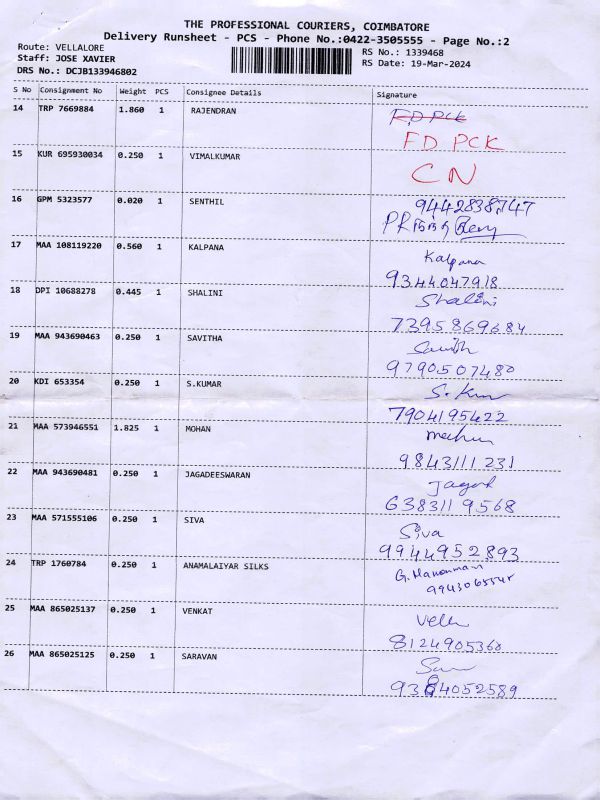 THE PROFESSIONAL COURIERS, COIMBATORE
Delivery Runsheet - PCS - Phone No.:0422-3505555 - Page No.:2
Route: VELLALORE
RS No.: 1339468
Staff: JOSE XAVIER
RS Date: 19-Mar-2024
DRS No.: DCJB133946802
S No Consignment No Weight PCS Consignee Details Signature
14 TRP 7669884 1.860 1 RAJENDRAN
FD PCK
FD PCK
15 KUR 695930034 0.250 1 VIMALKUMAR
CN
16 GPM 5323577 0.020 1 SENTHIL
9442838747
17 MAA 108119220 0.560 1 KALPANA
Kalpana
9344047918
18 DPI 10688278 0.445 1 SHALINI
Shalini
7395869684
19 MAA 943690463 0.250 1 SAVITHA
9790507480
20 KDI 653354 0.250 1 S.KUMAR
S. Kum
7904195422
21 MAA 573946551 1.825 1 MOHAN
9843111231
22 MAA 943690481 0.250 1 JAGADEESWARAN
6383119568
23 MAA 571555106 0.250 1 SIVA
Siva
9944952893
24 TRP 1760784 0.250 1 ANAMALAIYAR SILKS
25 MAA 865025137 0.250 1 VENKAT
8124905360
26 MAA 865025125 0.250 1 SARAVAN